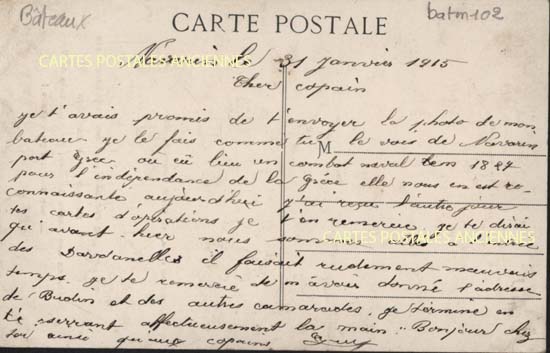 Bâteaux
batm-102
CARTE POSTALE
CARTES POSTALES ANCIENNES
Navarin le 31 Janvier 1915
Cher copain
je t'avais promis de t'envoyer la photo de mon
bateau je le fais comme tu le vois de Navarin
M
port Grec où eû lieu un combat naval en 1827
pour l'indépendance de la Grèce elle nous en est re-
connaissante aujourd'hui j'ai reçu l'autre jour
tes cartes d'opérations je t'en remercie, je te dirai
qu'avant-hier nous sommes
CARTES POSTALES ANCIENNES
des Dardanelles il faisait rudement mauvais
temps. je te remercie de m'avoir donné l'adresse
de Budin et des autres camarades, je termine en
te serrant affectueusement la main. Bonjour chez
toi ainsi qu'aux copains Guy